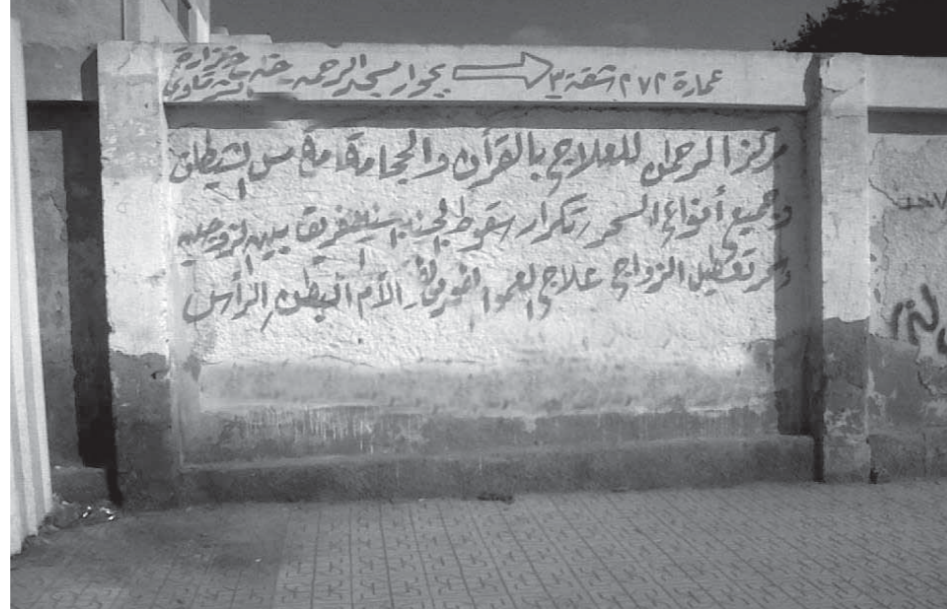 عمارة ٢٧٢ شقة ٣
بجوار مسجد الرحمه
مركز الرحمن للعلاج بالقرأن والحجامة من مس الشيطان
وجميع أنواع السحر تكرار سقوط الجنين التفريق بين الزوجين
وسحر تعطيل الزواج علاج الام البطن الرأس